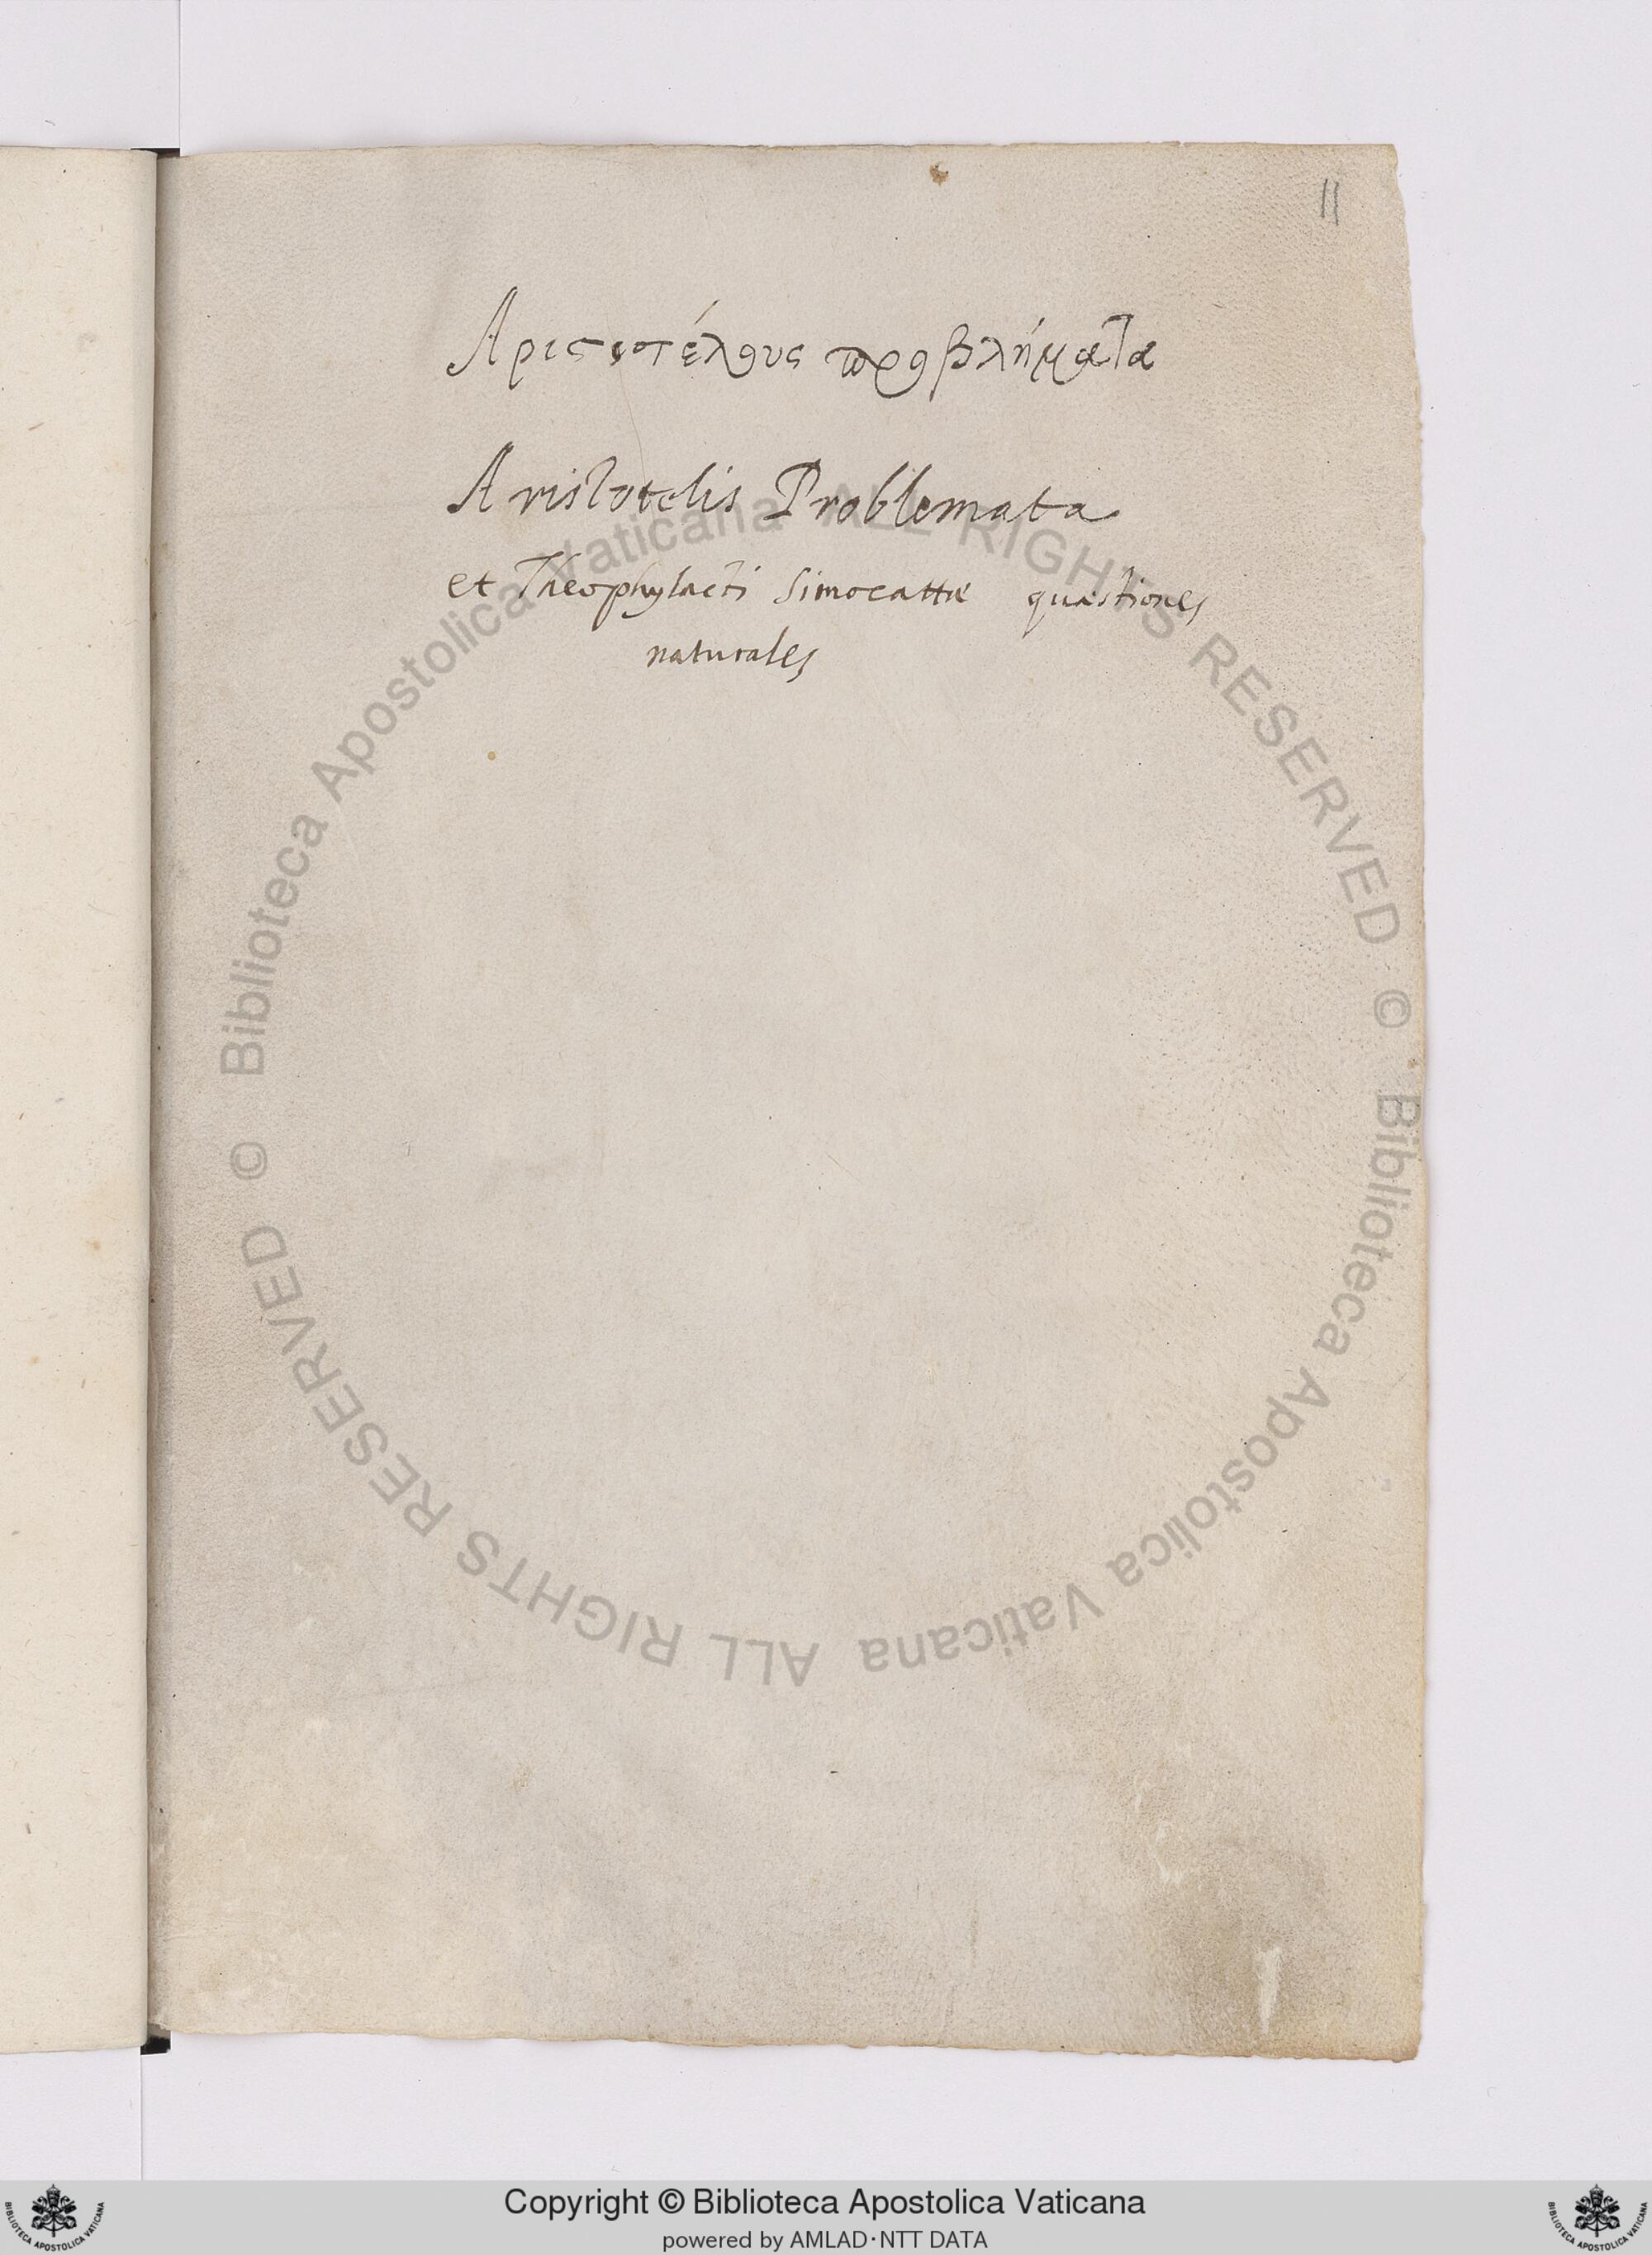 II
Αριστοτέλους προβλήματα
Aristotelis Problemata
et Theophylacti Simocattæ quæstiones
naturales
© Biblioteca Apostolica Vaticana ALL RIGHTS RESERVED
© Biblioteca Apostolica Vaticana ALL RIGHTS RESERVED
Copyright © Biblioteca Apostolica Vaticana
powered by AMLAD·NTT DATA
BIBLIOTECA APOSTOLICA VATICANA
BIBLIOTECA APOSTOLICA VATICANA